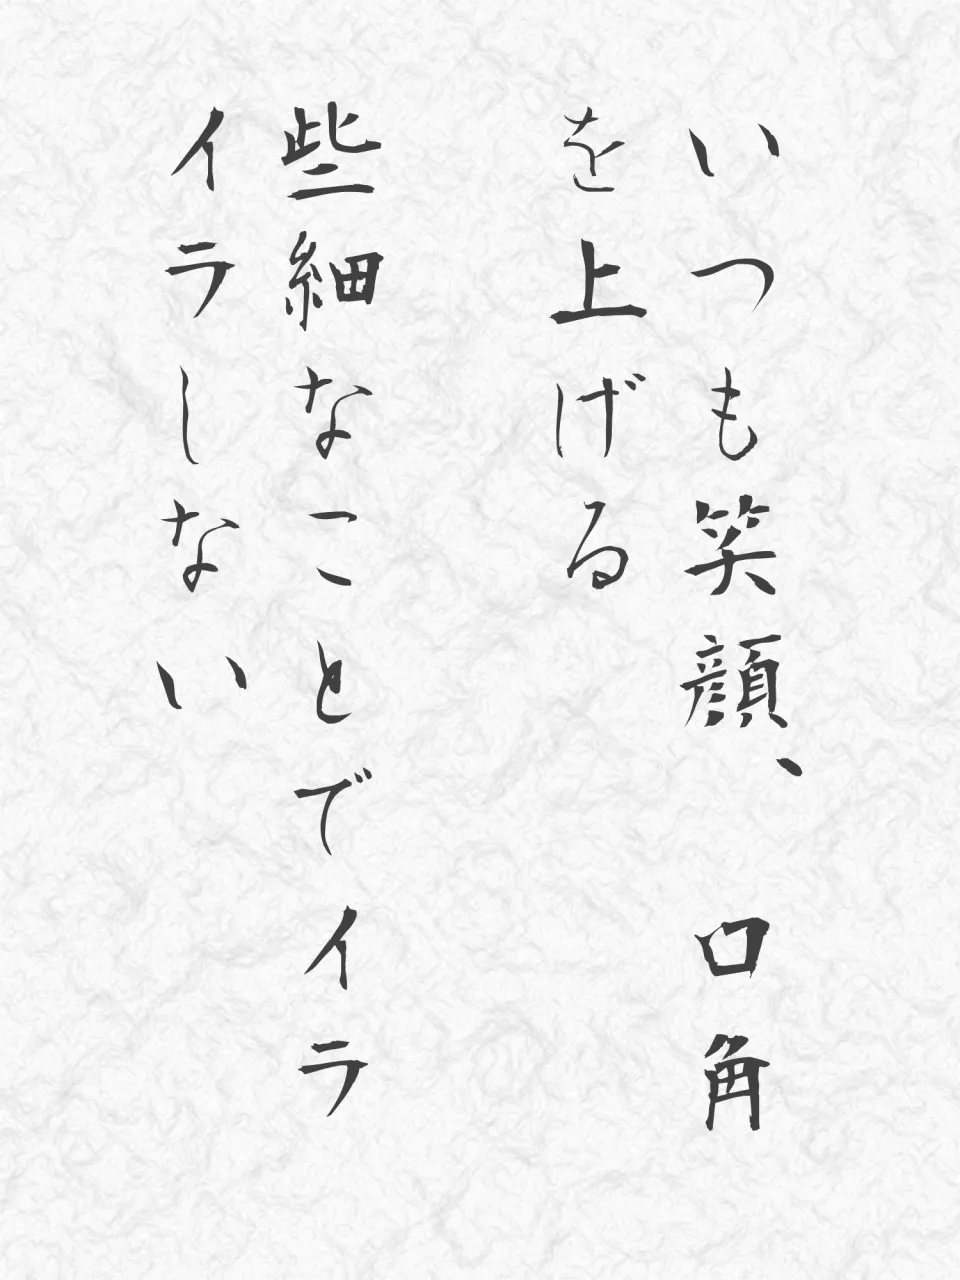 いつも笑顔、口角
を上げる
些細なことでイラ
イラしない